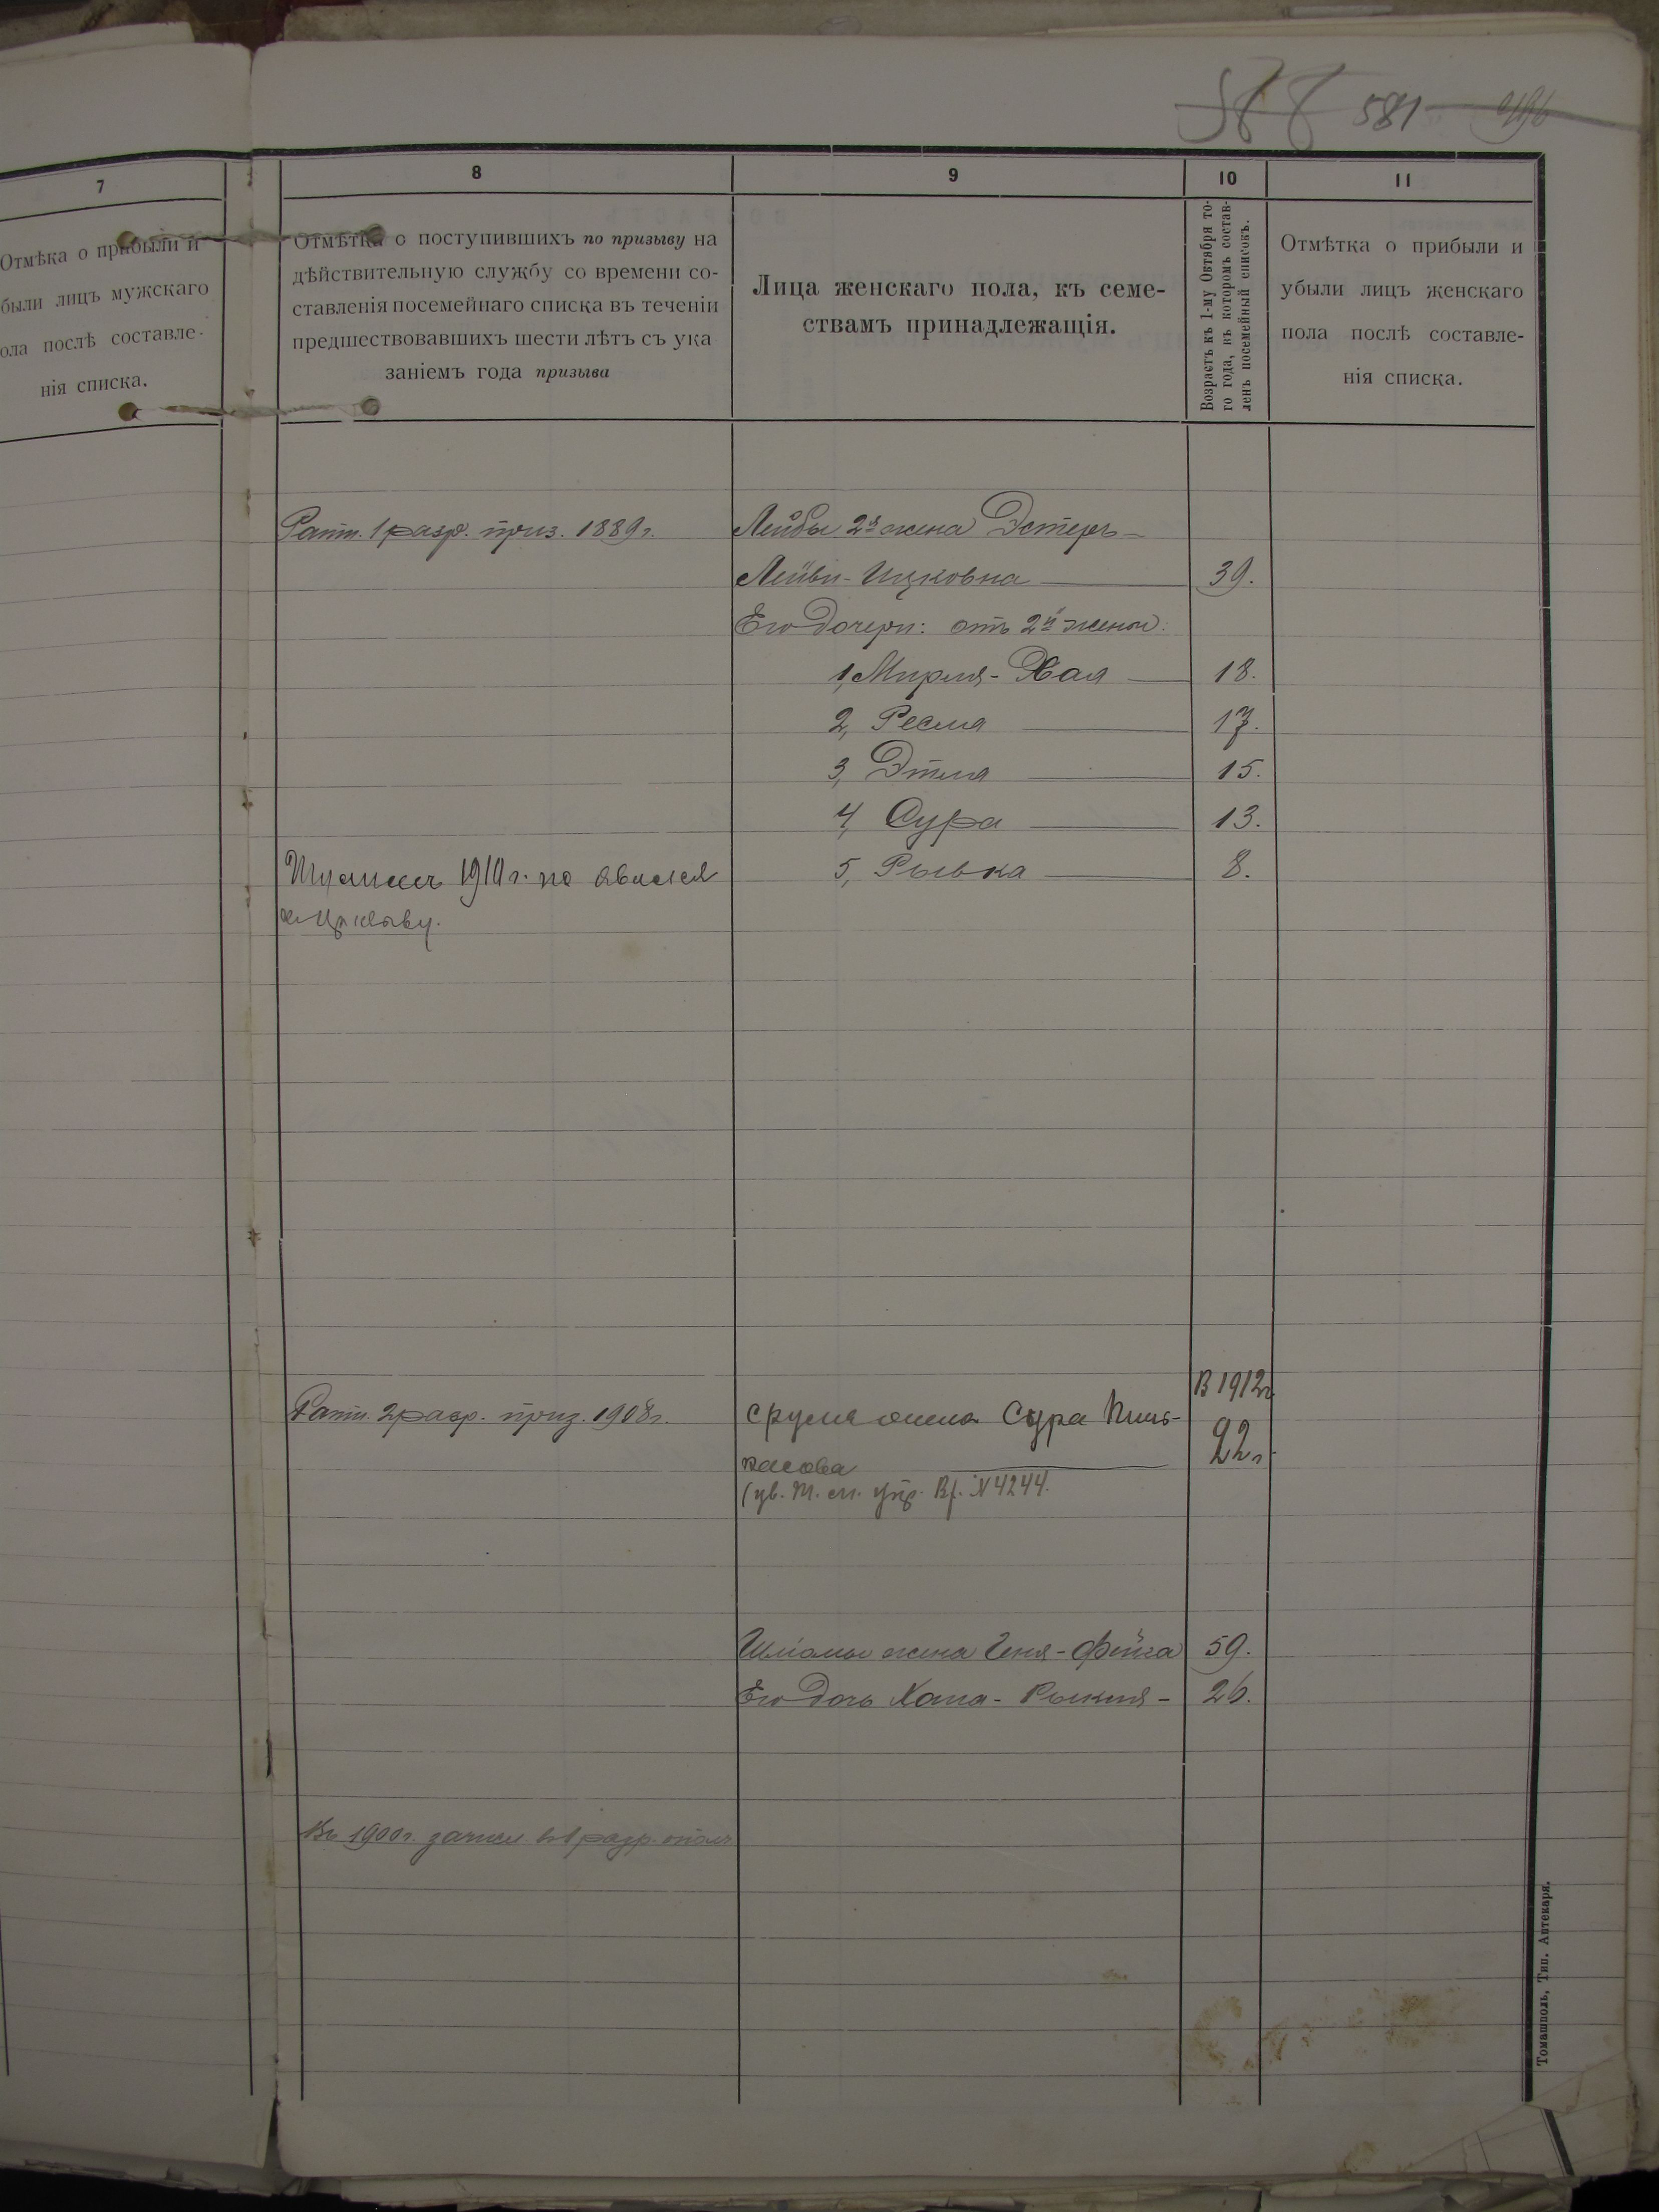 581
7
Отмѣка о прибыли и
были лицъ мужскаго
ола послѣ составле-
нія списка.
8
Отмѣтка о поступившихъ по призыву на
дѣйствительную службу со времени со-
ставленія посемейнаго списка въ теченіи
предшествовавшихъ шести лѣтъ съ ука
заніемъ года призыва
9
Лица женскаго пола, къ семе-
ствамъ принадлежащія.
10
Возрастъ къ 1-му Октября то-
го года, въ которомъ состав-
ленъ посемейный списокъ.
11
Отмѣтка о прибыли и
убыли лицъ женскаго
пола послѣ составле-
нія списка.
Ратн. 1 разр. приз. 1889 г.
Лейбы 2я жена Эстеръ-
Лейви-Ицковна 39.
Его дочери: отъ 2й жены:
1, Мирля-Хая 18.
2, Песля 17.
3, Этля 15.
4, Сура 13.
5, Рывка 8.
1910 г. не явился
къ призыву.
Ратн. 2 разр. приз. 1908 г.
Сруля жена Сура Пинь-
касова
В 1912 г.
22 г.
(ув. Т. м. упр. № 4244.
Шлiомы жена Геня-Фейга 59.
Его дочь Хана-Рыкля- 26.
Въ 1900 г. зачисл. въ 1 разр. ополч
Томашполь, Тип. Аптекаря.